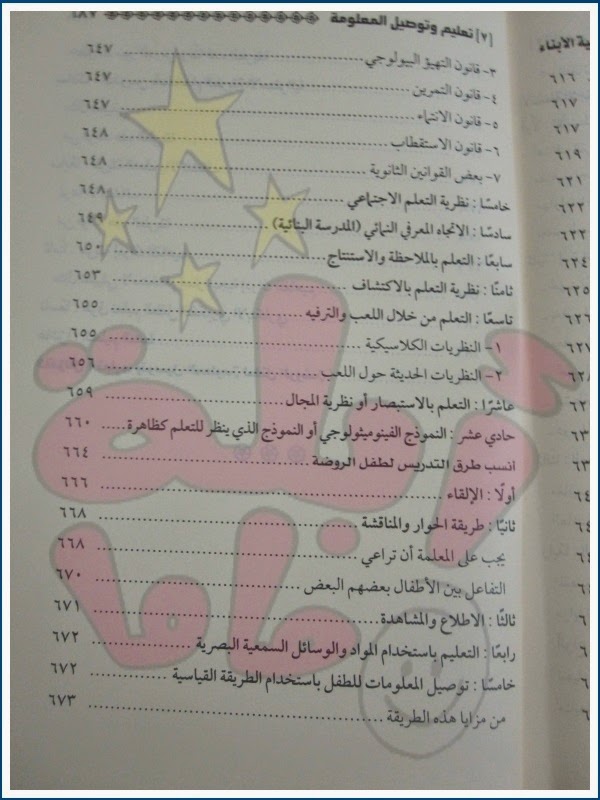 [٧] تعليم وتوصيل المعلومة ٦٨٧
٣- قانون التهيؤ البيولوجي ٦٤٧
٤- قانون التمرين ٦٤٧
٥- قانون الانتماء ٦٤٧
٦- قانون الاستقطاب ٦٤٨
٧- بعض القوانين الثانوية ٦٤٨
خامسًا : نظرية التعلم الاجتماعي ٦٤٨
سادسًا : الاتجاه المعرفي النمائي (المدرسة البنائية) ٦٤٩
سابعًا : التعلم بالملاحظة والاستنتاج ٦٥٠
ثامنًا : نظرية التعلم بالاكتشاف ٦٥٣
تاسعًا : التعلم من خلال اللعب والترفيه ٦٥٥
١- النظريات الكلاسيكية ٦٥٥
٢- النظريات الحديثة حول اللعب ٦٥٦
عاشرًا : التعلم بالاستبصار أو نظرية المجال ٦٥٩
حادي عشر : النموذج الفينوميثولوجي أو النموذج الذي ينظر للتعلم كظاهرة ٦٦٠
انسب طرق التدريس لطفل الروضة ٦٦٤
أولًا : الإلقاء ٦٦٦
ثانيًا : طريقة الحوار والمناقشة ٦٦٨
يجب على المعلمة أن تراعي ٦٦٨
التفاعل بين الأطفال بعضهم البعض ٦٧٠
ثالثًا : الاطلاع والمشاهدة ٦٧١
رابعًا : التعليم باستخدام المواد والوسائل السمعية البصرية ٦٧٢
خامسًا : توصيل المعلومات للطفل باستخدام الطريقة القياسية ٦٧٢
من مزايا هذه الطريقة ٦٧٣
ية الأبناء
٦١٦
٦١٧
٦١٧
٦١٩
٦٢١
٦٢٢
٦٢٢
٦٢٤